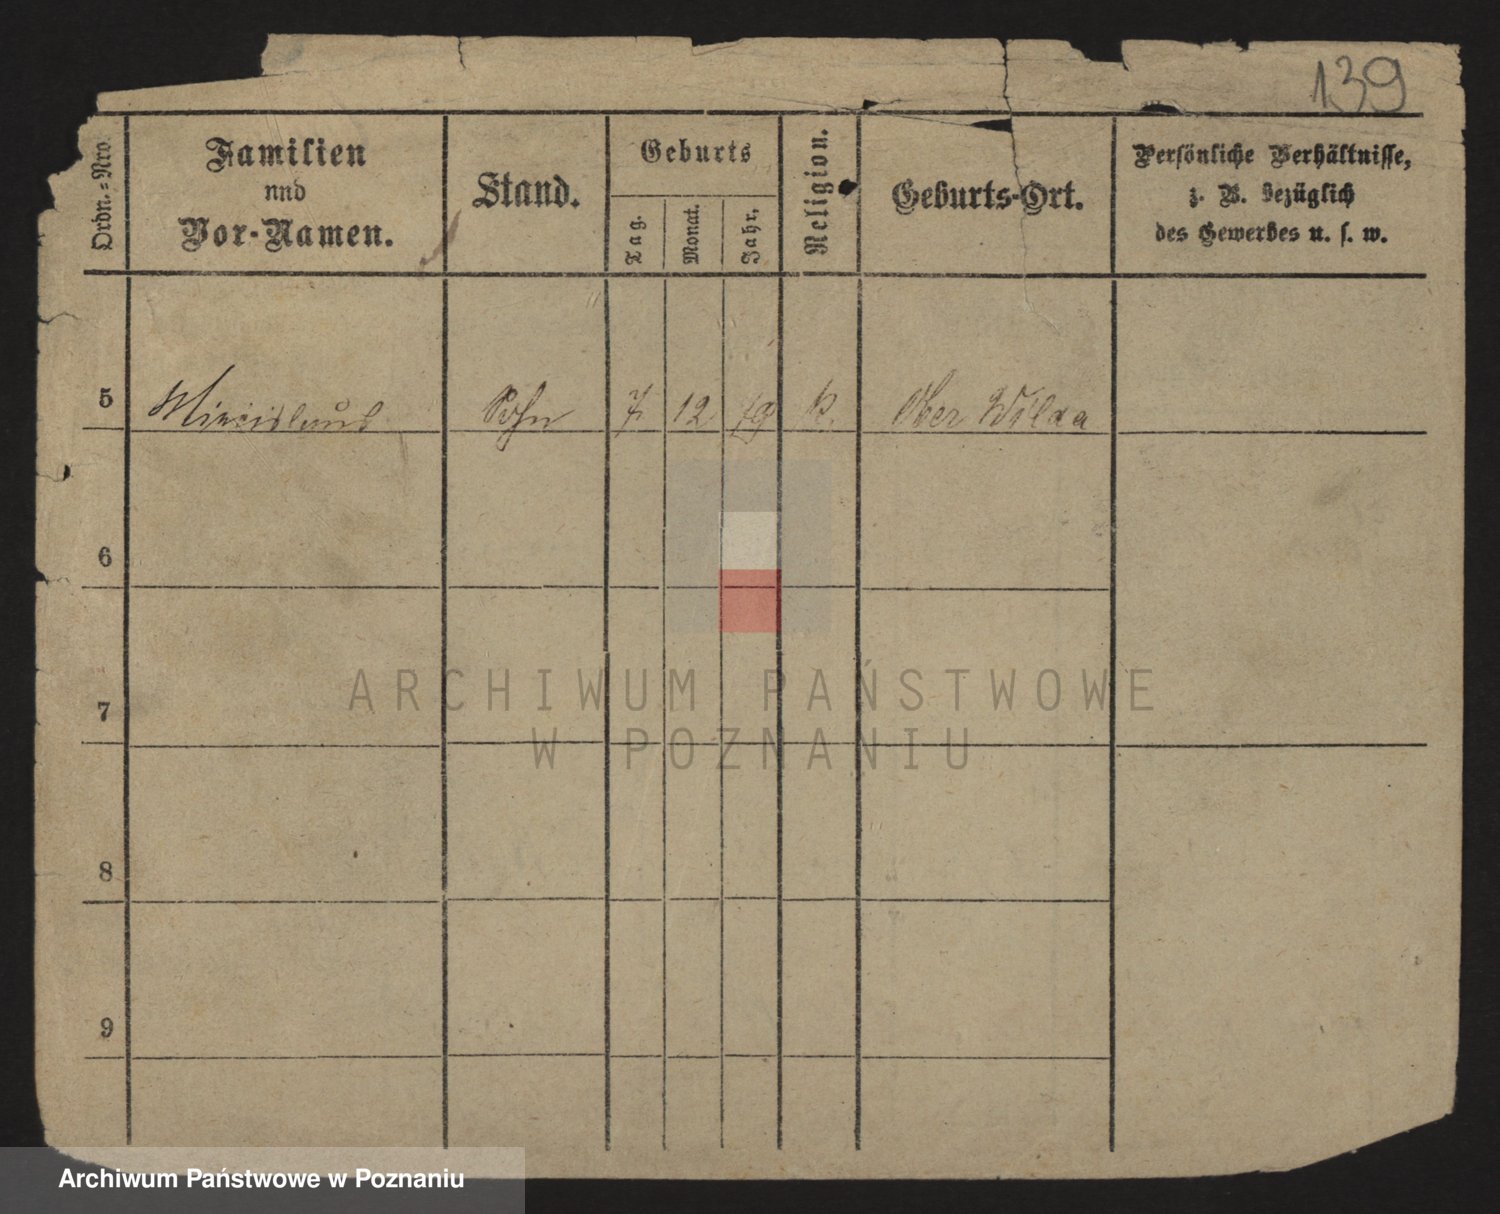 139
Ordn.-Nro.
Familien
nnd
Vor-Namen.
Stand.
Geburts
Tag.
Monat.
Jahr.
Religion.
Geburts-Ort.
Persönliche Verhältnisse,
z. B. bezüglich
des Gewerbes u. s. w.
5 Miecislaus Sohn 7. 12 79 k. Ober Wilda
6
7
8
9
ARCHIWUM PAŃSTWOWE
W POZNANIU
Archiwum Państwowe w Poznaniu